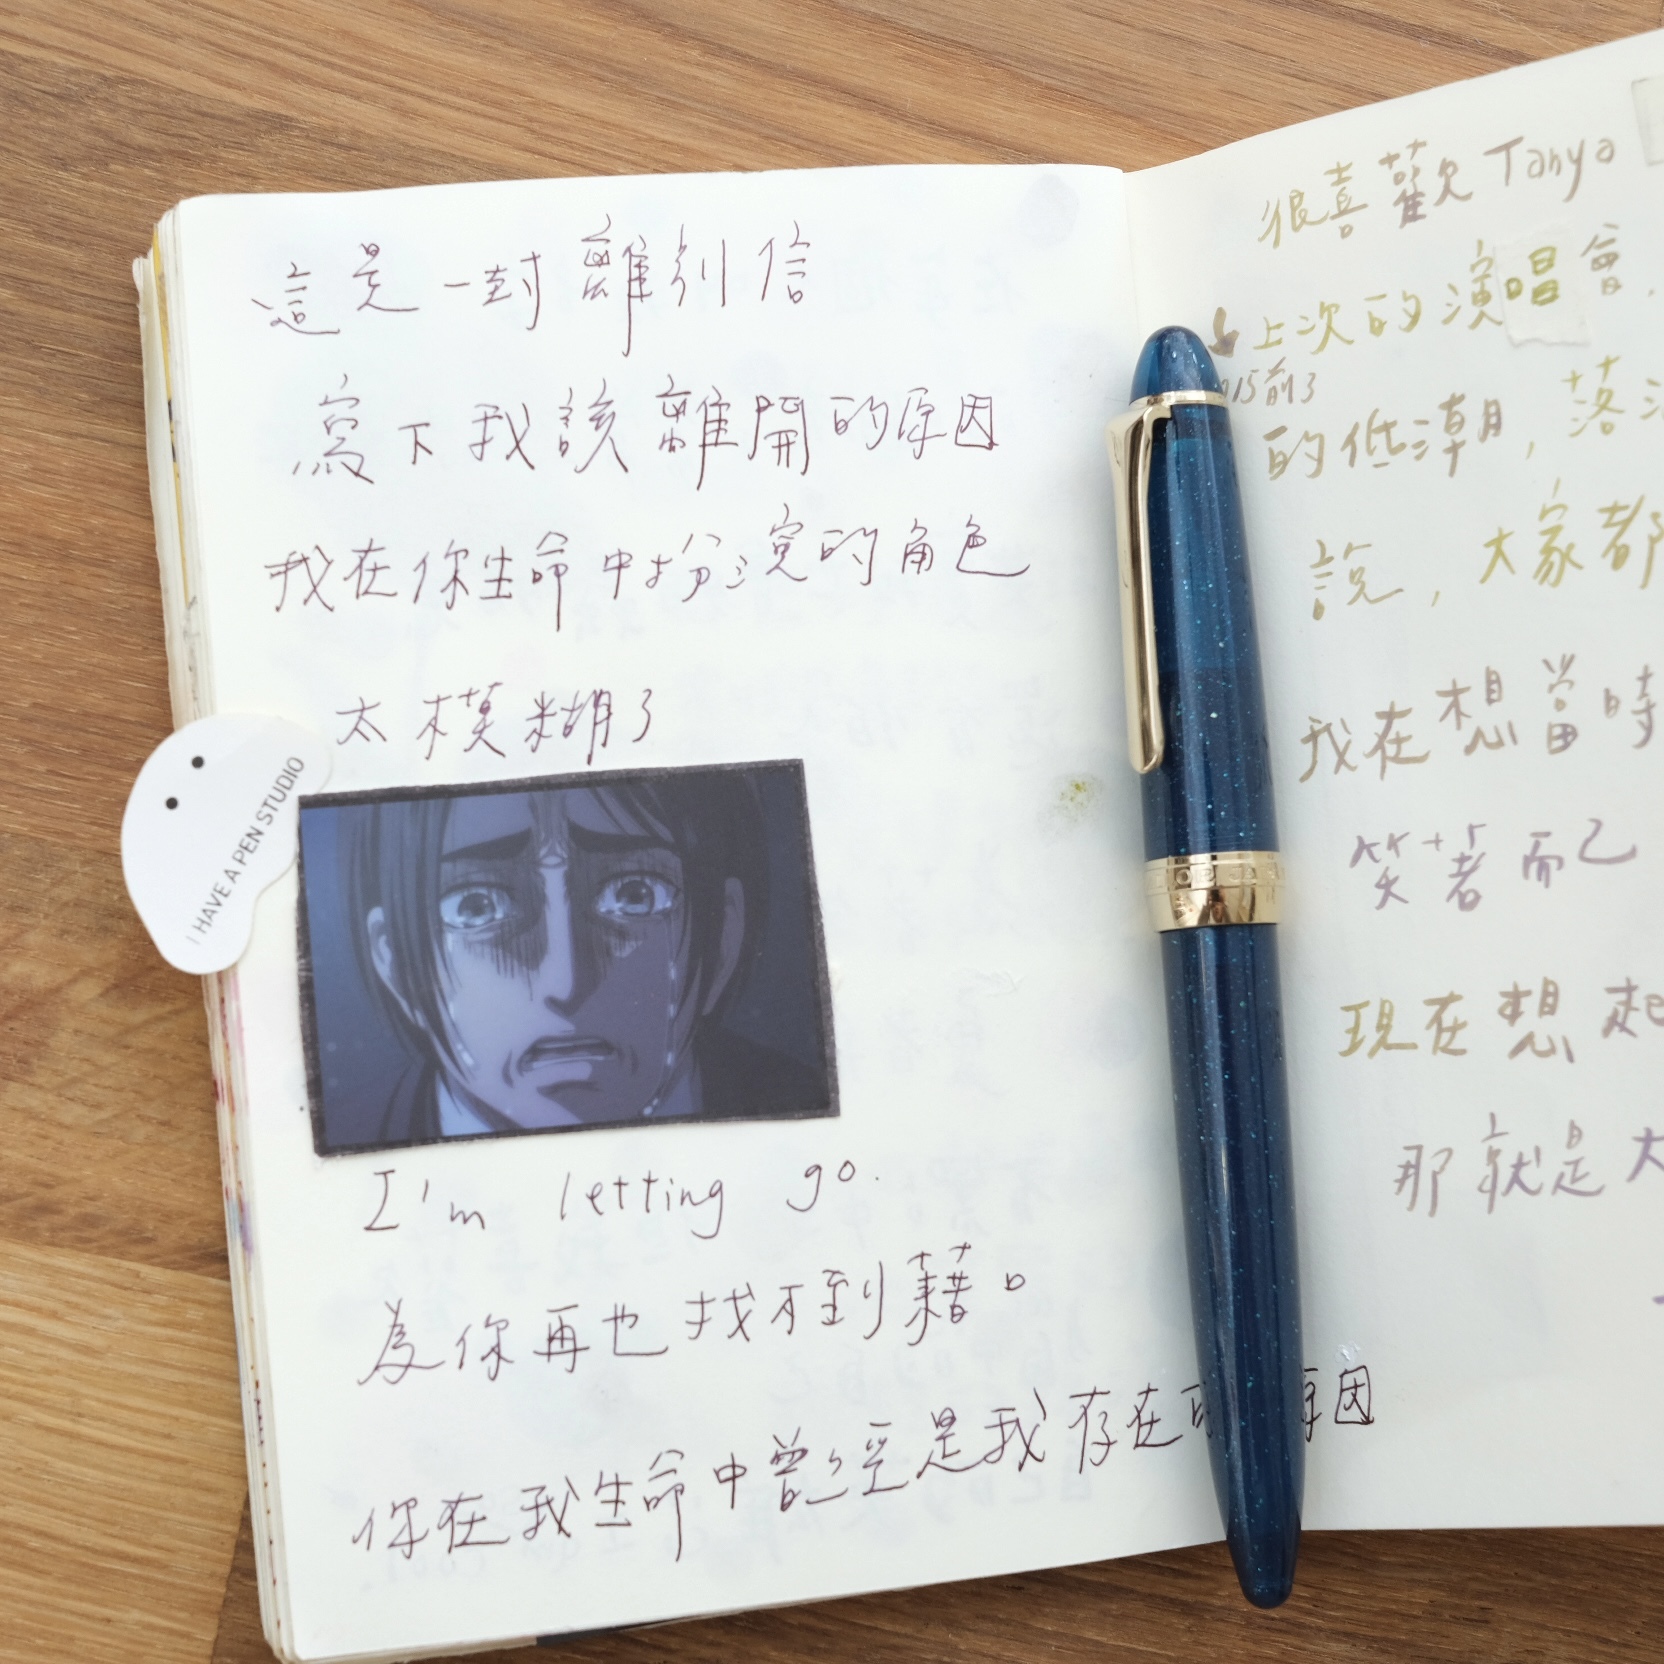 這是一封離別信
寫下我該離開的原因
我在你生命中扮演的角色
太模糊了
I HAVE A PEN STUDIO
I'm letting go.
為你再也找不到藉口
你在我生命中曾經是我存在的原因
很喜歡 Tanya
上次的演唱會,
015前了
的低潮,落
說,大家都
我在想當時
笑著而已
現在想起
那就是大